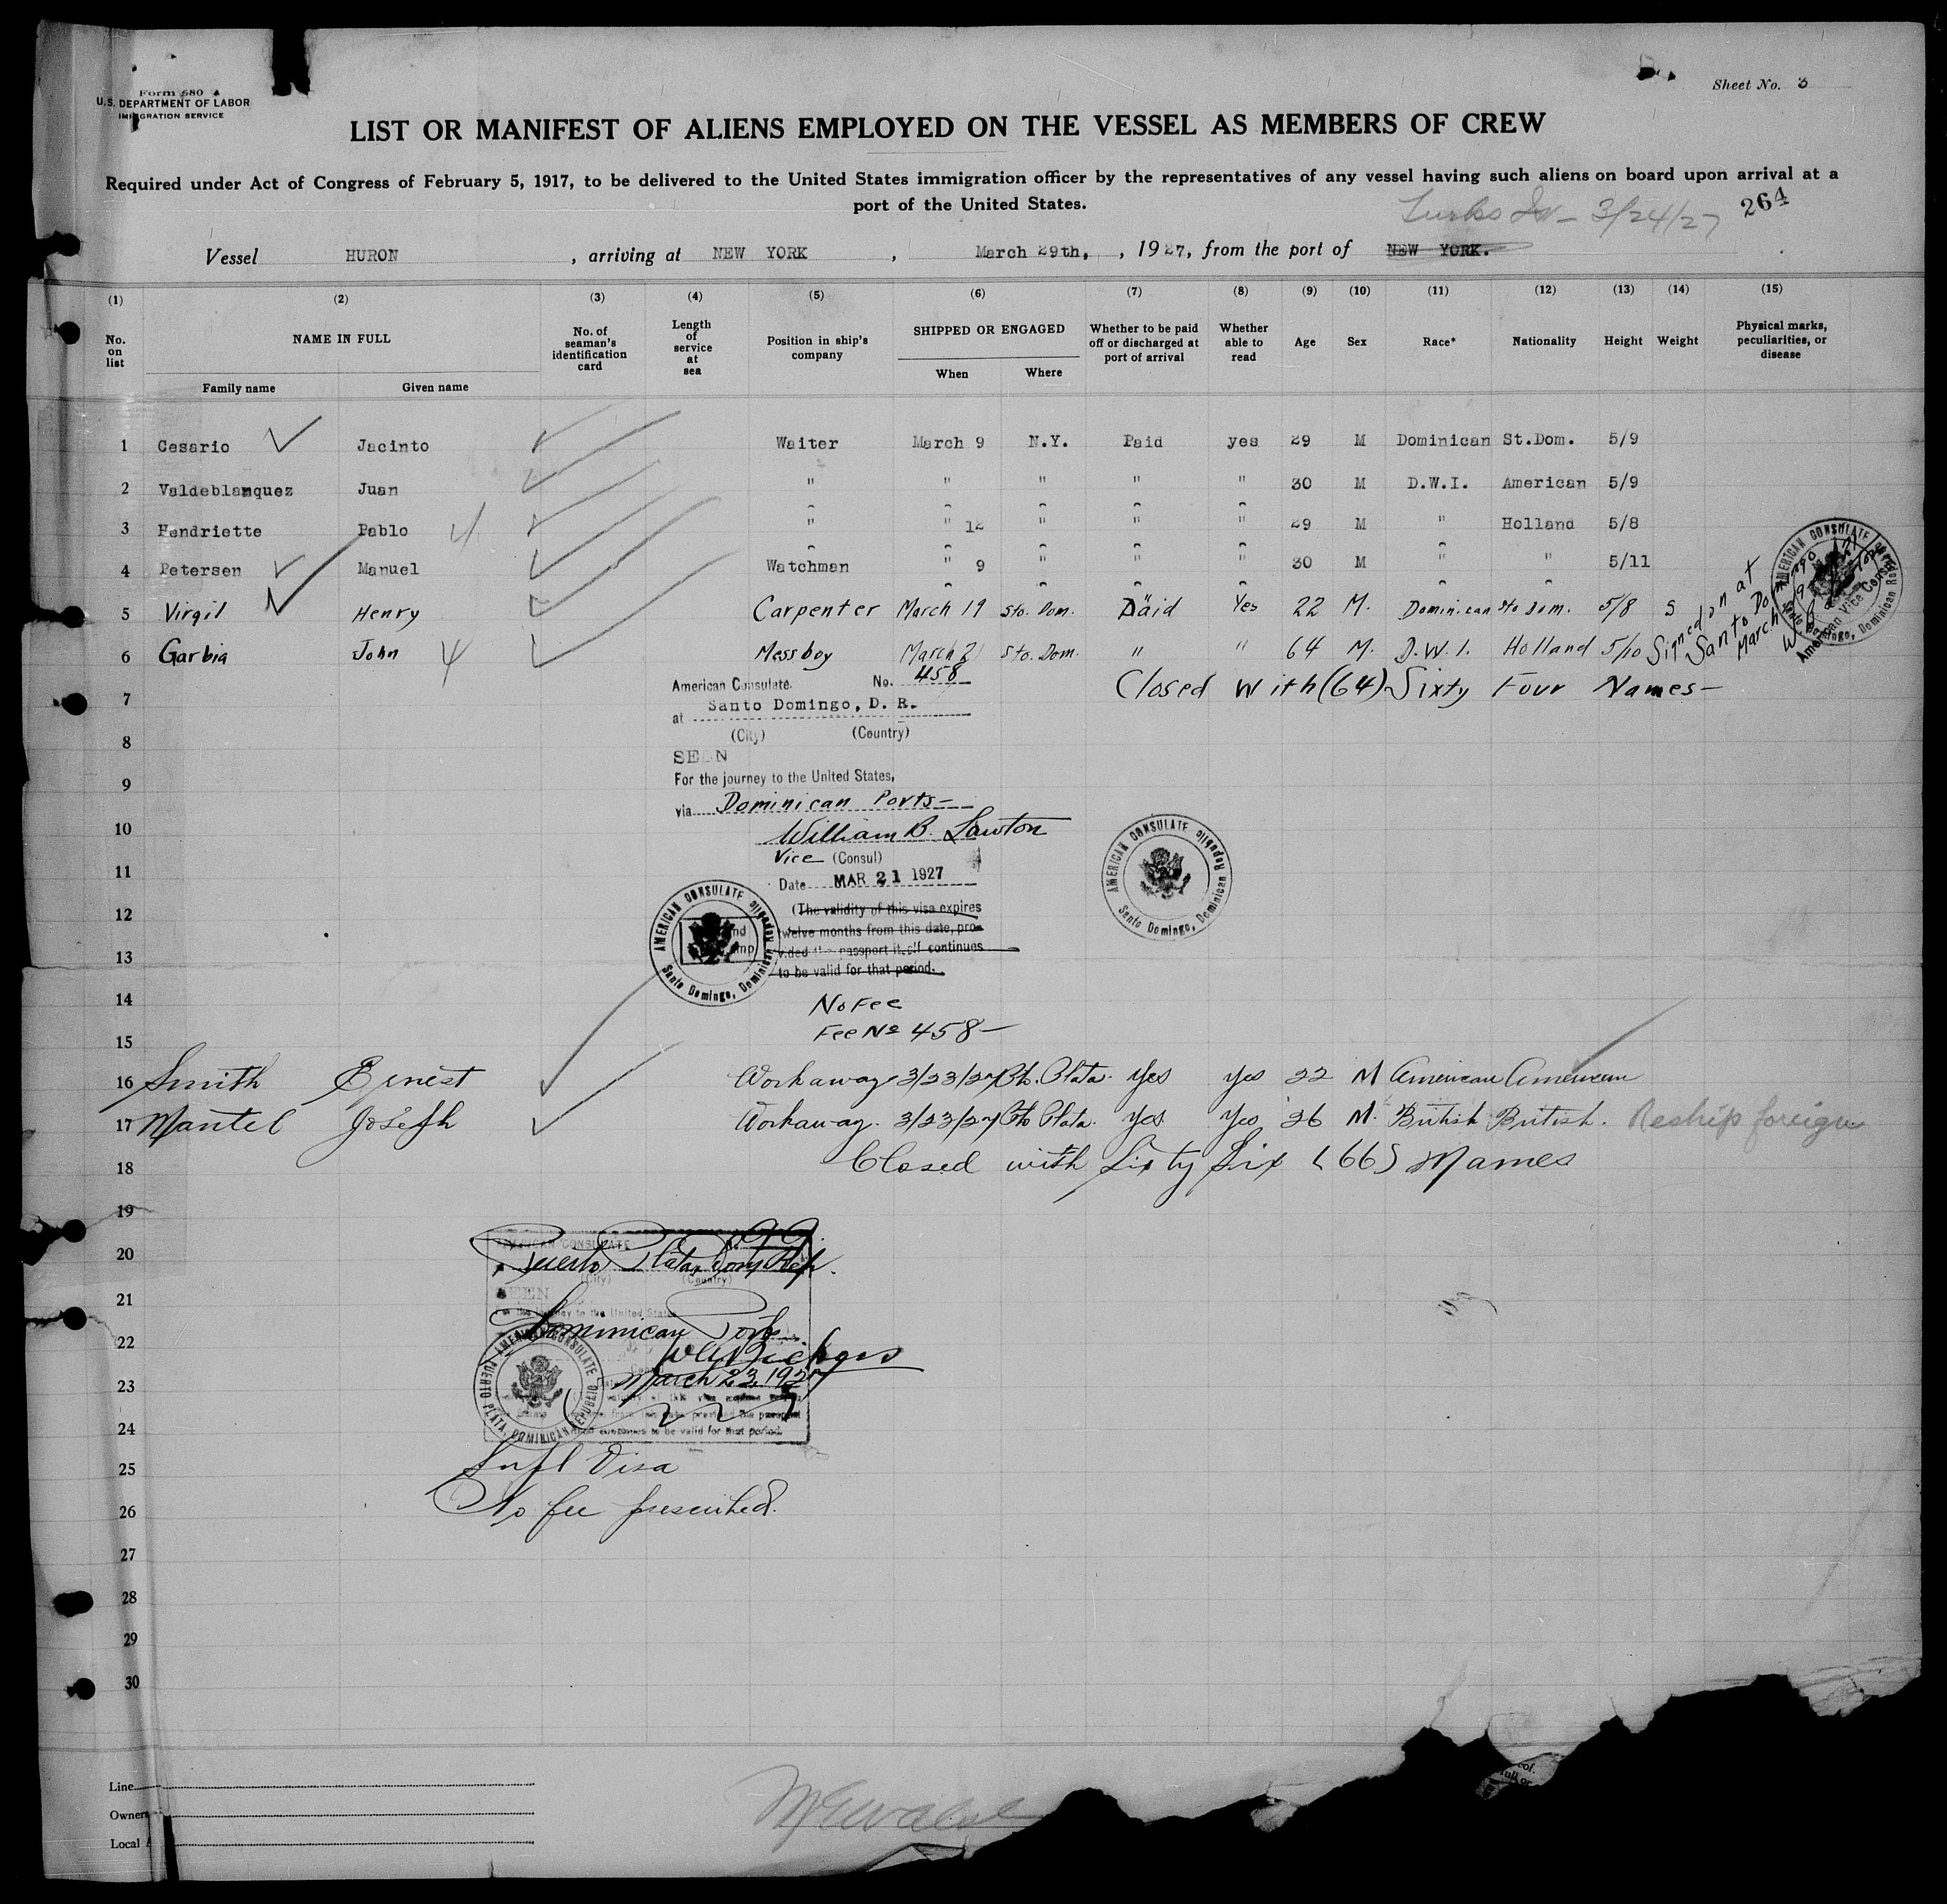 Form 680
U.S. DEPARTMENT OF LABOR
IMMIGRATION SERVICE
Sheet No. 3
LIST OR MANIFEST OF ALIENS EMPLOYED ON THE VESSEL AS MEMBERS OF CREW
Required under Act of Congress of February 5, 1917, to be delivered to the United States immigration officer by the representatives of any vessel having such aliens on board upon arrival at a
port of the United States.
Turks Is - 3/24/27 264
Vessel HURON, arriving at NEW YORK, March 29th, , 1927, from the port of NEW YORK.
(1) (2) (3) (4) (5) (6) (7) (8) (9) (10) (11) (12) (13) (14) (15)
No. on list NAME IN FULL No. of seaman's identification card Length of service at sea Position in ship's company SHIPPED OR ENGAGED Whether to be paid off or discharged at port of arrival Whether able to read Age Sex Race* Nationality Height Weight Physical marks, peculiarities, or disease
Family name Given name When Where
1 Cesario Jacinto Waiter March 9 N.Y. Paid yes 29 M Dominican St.Dom. 5/9
2 Valdeblanquez Juan " " " " " 30 M D.W.I. American 5/9
3 Hendriette Pablo " " 12 " " " 29 M " Holland 5/8
4 Petersen Manuel Watchman " 9 " " " 30 M " " 5/11
5 Virgil Henry Carpenter March 19 Sto. Dom. Paid Yes 22 M. Dominican Sto Dom. 5/8 S
6 Garbia John Messboy March 21 Sto. Dom. " " 64 M. D.W.I. Holland 5/10
Signed on at
Santo Do
March
American Vice Consul
AMERICAN CONSULATE Santo Domingo, Dominican Republic
Closed With (64) Sixty Four Names-
7
8
9
10
11
12
13
14
15
American Consulate. No. 458
at Santo Domingo, D. R.
(City) (Country)
SEEN
For the journey to the United States,
via Dominican Ports-
William B. Lawton
Vice (Consul)
Date MAR 21 1927
(The validity of this visa expires
twelve months from this date, pro-
vided the passport itself continues
to be valid for that period.
AMERICAN CONSULATE Santo Domingo, Dominican Republic
AMERICAN CONSULATE Santo Domingo, Dominican Republic
No Fee
Fee No 458-
16 Smith Ernest Workaway 3/23/27 Pto. Plata. Yes Yes 22 M American American
17 Mantel Joseph Workaway. 3/23/27 Pto Plata. Yes. Yes 26 M. British British. Reship foreign
18 Closed with Sixty Six (66) Names
19
20
21
22
23
24
25
26
27
28
29
30
AMERICAN CONSULATE
Puerto Plata, Dom. Rep.
(City) (Country)
SEEN
the journey to the United States
Dominican Ports
March 23, 1927
continues to be valid for that period.
AMERICAN CONSULATE PUERTO PLATA, DOMINICAN REPUBLIC
Visa
No fee prescribed.
Line
Owners
Local